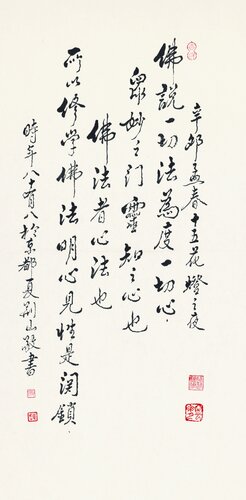 辛卯孟春十五花燈之夜
佛說一切法為度一切心
眾妙之門靈知之心也
佛法者心法也
所以修学佛法明心見性是関鎖
時年八十有八於京都夏荆山敬書